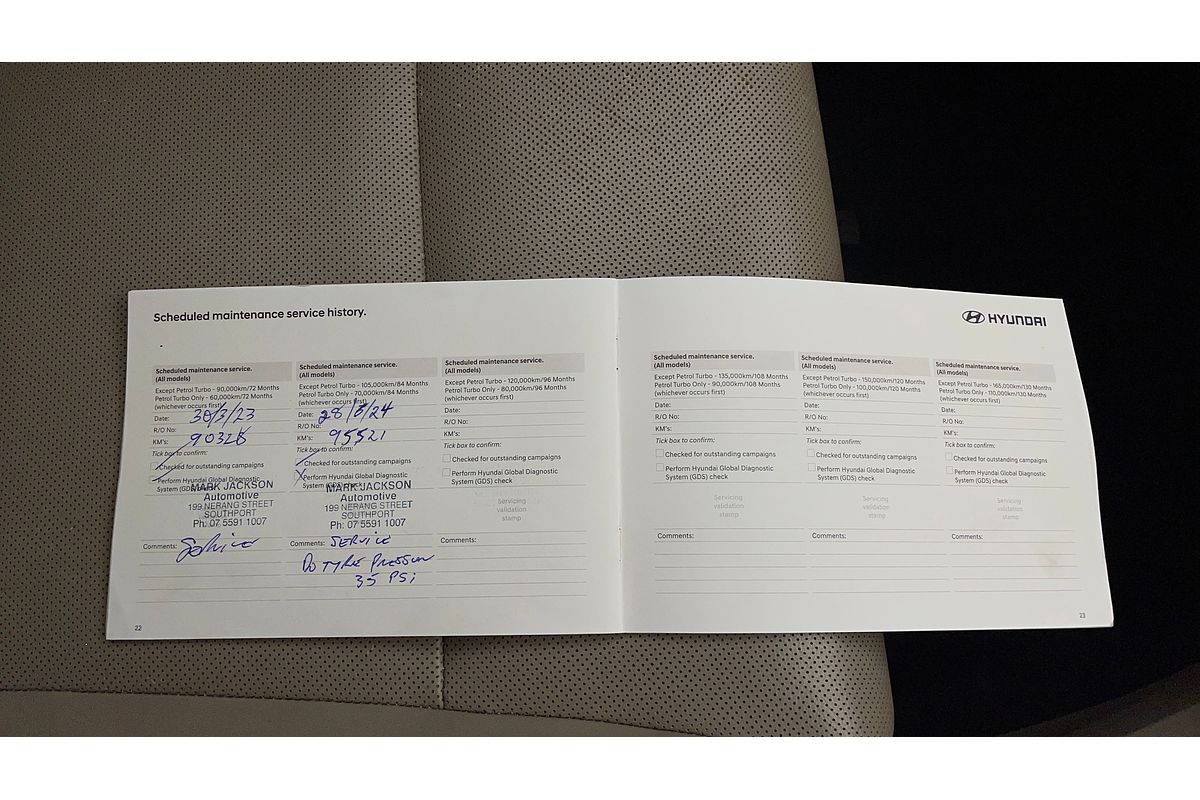 Scheduled maintenance service history.
HYUNDAI
Scheduled maintenance service.
(All models)
Except Petrol Turbo - 90,000km/72 Months
Petrol Turbo Only - 60,000km/72 Months
(whichever occurs first)
Date: 30/3/23
R/O No:
KM's: 90328
Tick box to confirm:
Checked for outstanding campaigns
Perform Hyundai Global Diagnostic
System (GDS)
MARK JACKSON
Automotive
199 NERANG STREET
SOUTHPORT
Ph: 07 5591 1007
Comments: Service
22
Scheduled maintenance service.
(All models)
Except Petrol Turbo - 105,000km/84 Months
Petrol Turbo Only - 70,000km/84 Months
(whichever occurs first)
Date: 28/8/24
R/O No:
KM's: 95521
Tick box to confirm:
Checked for outstanding campaigns
Perform Hyundai Global Diagnostic
System (GDS) check
MARK JACKSON
Automotive
199 NERANG STREET
SOUTHPORT
Ph: 07 5591 1007
Comments: SERVICE
TYRE PRESSURE
35 PSi
Scheduled maintenance service.
(All models)
Except Petrol Turbo - 120,000km/96 Months
Petrol Turbo Only - 80,000km/96 Months
(whichever occurs first)
Date:
R/O No:
KM's:
Tick box to confirm:
Checked for outstanding campaigns
Perform Hyundai Global Diagnostic
System (GDS) check
Servicing
validation
stamp
Comments:
Scheduled maintenance service.
(All models)
Except Petrol Turbo - 135,000km/108 Months
Petrol Turbo Only - 90,000km/108 Months
(whichever occurs first)
Date:
R/O No:
KM's:
Tick box to confirm:
Checked for outstanding campaigns
Perform Hyundai Global Diagnostic
System (GDS) check
Servicing
validation
stamp
Comments:
Scheduled maintenance service.
(All models)
Except Petrol Turbo - 150,000km/120 Months
Petrol Turbo Only - 100,000km/120 Months
(whichever occurs first)
Date:
R/O No:
KM's:
Tick box to confirm:
Checked for outstanding campaigns
Perform Hyundai Global Diagnostic
System (GDS) check
Servicing
validation
stamp
Comments:
Scheduled maintenance service.
(All models)
Except Petrol Turbo - 165,000km/130 Months
Petrol Turbo Only - 110,000km/130 Months
(whichever occurs first)
Date:
R/O No:
KM's:
Tick box to confirm:
Checked for outstanding campaigns
Perform Hyundai Global Diagnostic
System (GDS) check
Servicing
validation
stamp
Comments:
23